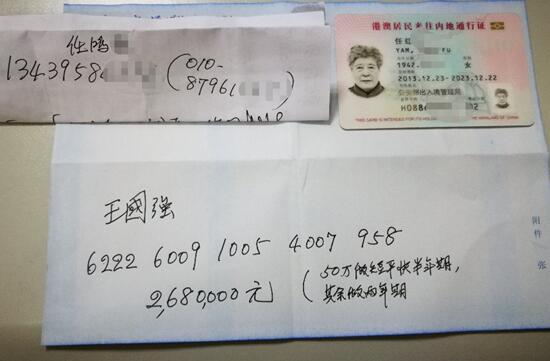 任鸿
1343958
(010-
8796
港澳居民来往内地通行证
任红
YAM, FU
1942. 女
2013.12.23-2023.12.22
公安部出入境管理局
H088 02
THIS CARD IS INTENDED FOR ITS HOLDER MAINLAND OF CHINA
附件 张
王國强
6222 6009 1005 4007 958
2,680,000元
(50万做短平快半年期,
其余做两年期